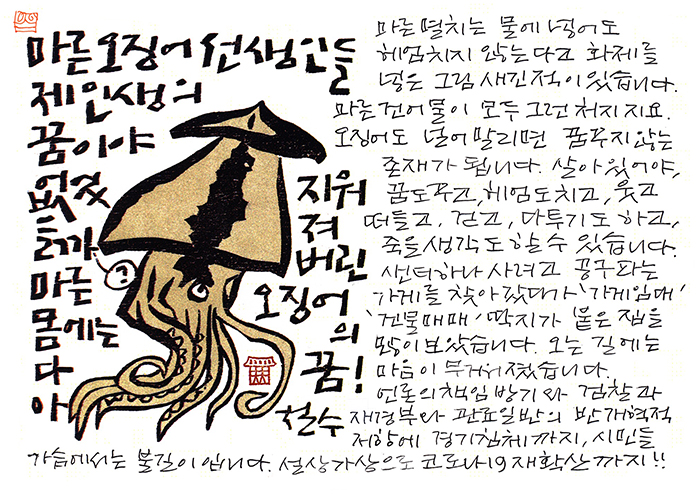 마른 오징어 선생인들
제 인생의
꿈이야
없었
을까
마른
몸에는
다
아
지워
져
버린
오징어
의
꿈!
철수
?
마른 멸치는 물에 넣어도
헤엄치지 않는다고 화제를
넣은 그림 새긴적이 있습니다.
마른 건어물이 모두 그런 처지지요.
오징어도 널어 말리면 꿈꾸지 않는
존재가 됩니다. 살아있어야,
꿈도꾸고, 헤엄도치고, 웃고
떠들고, 걷고, 다투기도 하고,
죽을생각도할수 있습니다.
샌더하나 사려고 공구파는
가게를 찾아갔다가 '가게임대'
'건물매매' 딱지가 붙은 집을
많이 보았습니다. 오는 길에는
마음이 무거워졌습니다.
언론의책임방기와 검찰과
재경부와 관료일반의 반개혁적
저항에 경기침체까지, 시민들
가슴에서는 불길이 입니다. 설상가상으로 코로나19 재확산까지!!